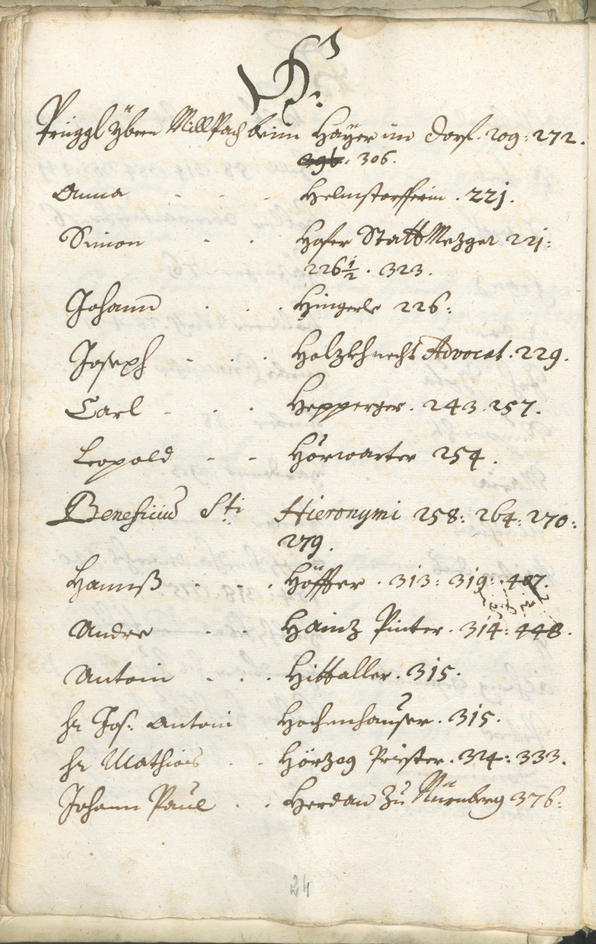 H.
Prüggl yber Millpach beim Hayer im Dorf. 209: 272.
296: 306.
Anna . . . Helmstorfferin . 221.
Simon . . Hofer Statt Mezger 221:
226½ . 323.
Johann . . . Hingerle 226:
Joseph . . . Holzkhnecht Advocat . 229.
Carl . . . Hepperger . 243. 257.
Leopold . . Hörwarter 254.
Beneficiu Sti Hieronymi 258: 264: 270:
279.
Hannß . . . Höffer . 313: 319: 407.
Andre . . . Hainz Pinter . 314: 448.
Antoni . . . Hittaller . 315.
hr Jos: Antoni Hochenhauser . 315.
hr Mathias . . Hörzog Priester . 324: 333.
Johann Paul . . Herdan zu Nürnberg 376:
24